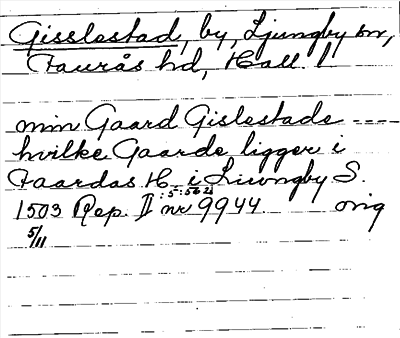 Gisslestad, by, Ljungby sn,
Faurås hd, Hall. l
min Gaard Gislestade ----
hvilke Gaarde ligger i
Faardas H. i Liwngby S.
:5:562
1503 Rep. II nr 9944. orig
5/11